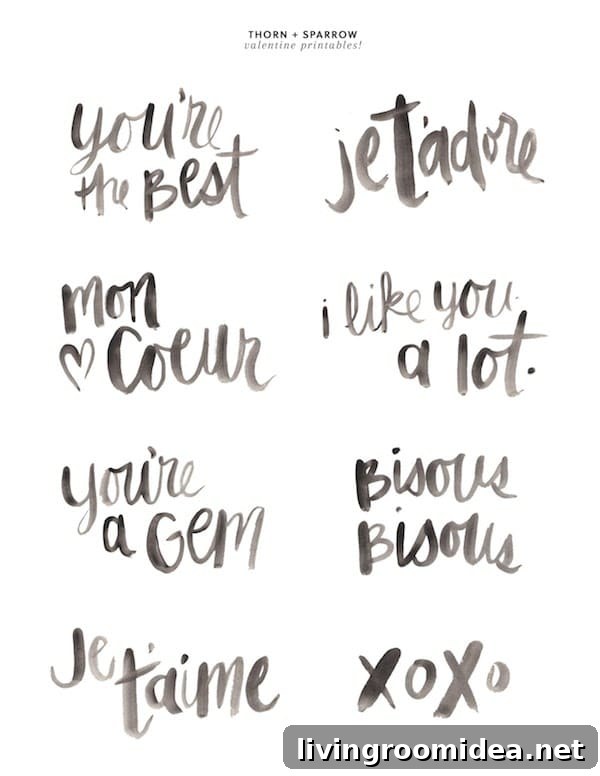 THORN + SPARROW
valentine printables!
you're
the Best
je t'adore
mon
coeur
i like you
a lot.
you're
a Gem
Bisous
Bisous
Je t'aime
xoxo
livingroomidea.net